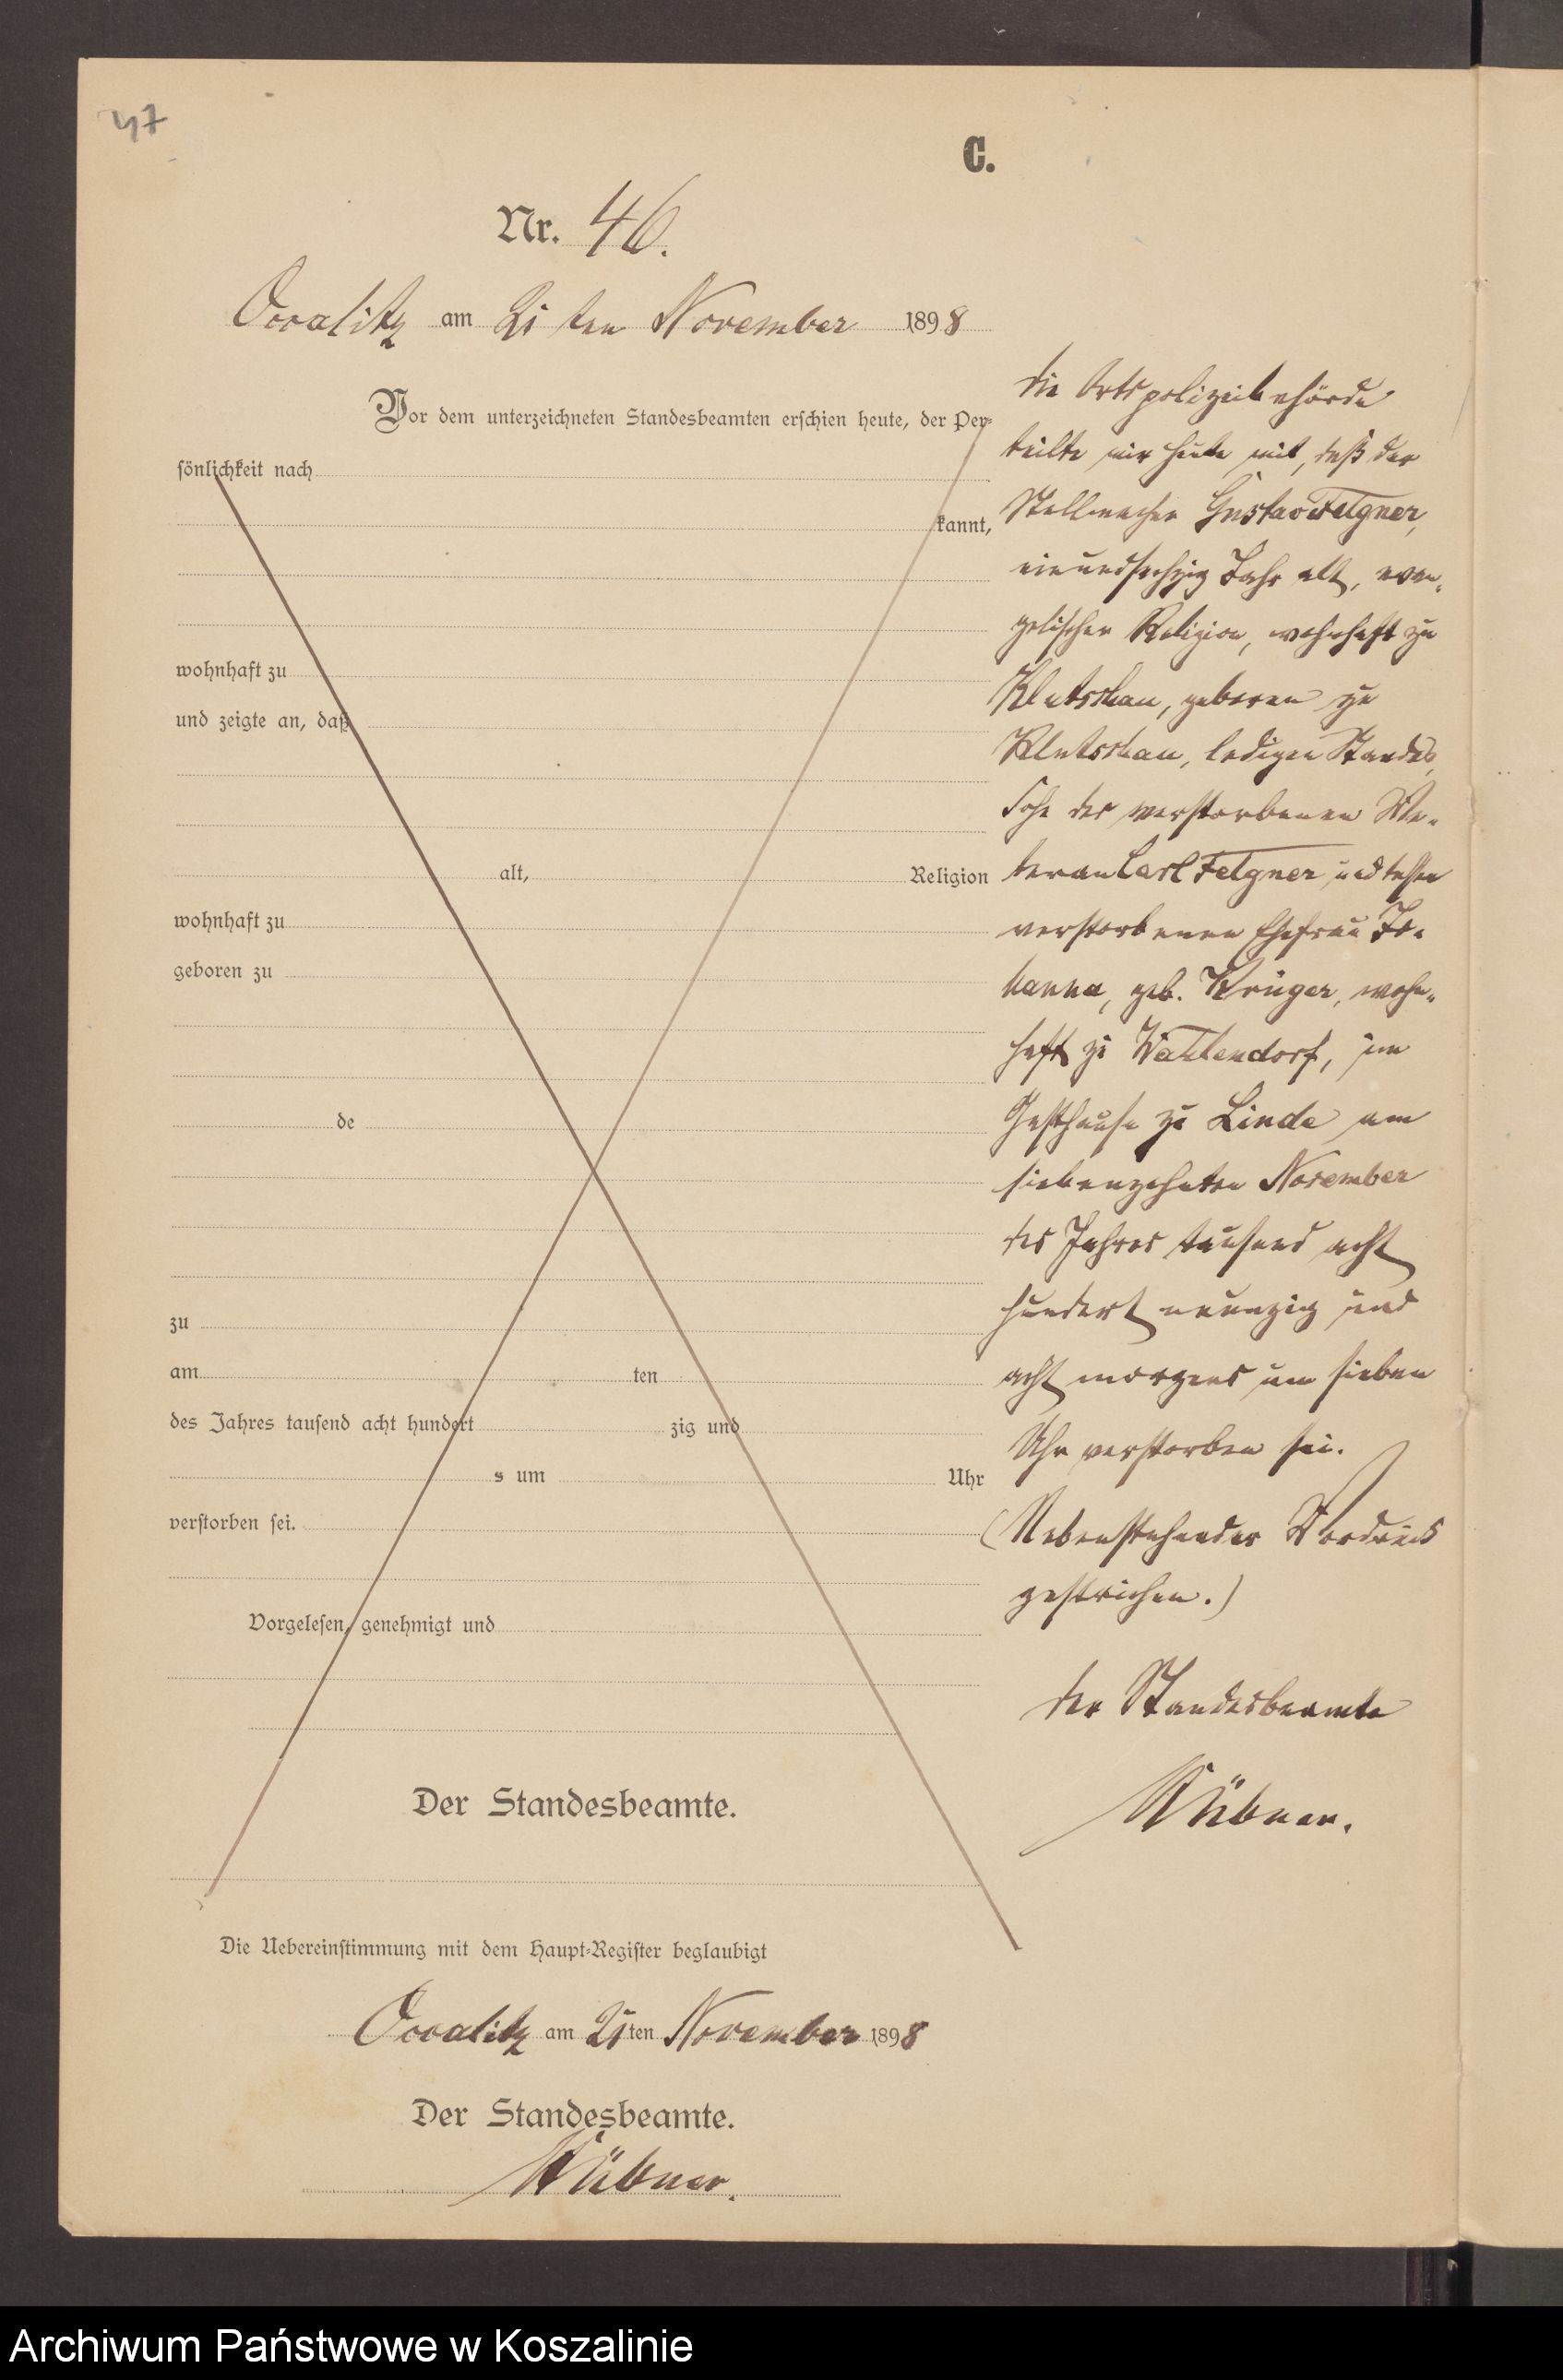 47
C.
Nr. 46.
Occalitz am 21 ten November 1898
Vor dem unterzeichneten Standesbeamten erschien heute, der Per-
sönlichkeit nach
kannt,
wohnhaft zu
und zeigte an, daß
alt, Religion
wohnhaft zu
geboren zu
de
zu
am ten
des Jahres tausend acht hundert zig und
s um Uhr
verstorben sei.
Vorgelesen, genehmigt und
Der Standesbeamte.
die Ortspolizeibehörde
teilte mir heute mit, daß der
Stellmacher Gustav Felgner,
einundsechzig Jahr alt, evan-
gelischer Religion, wohnhaft zu
Klutschau, geboren zu
Klutschau, ledigen Standes,
Sohn des verstorbenen Ve-
teran Carl Felgner und dessen
verstorbenen Ehefrau Jo-
hanna, geb. Krüger, wohn-
haft zu Wahlendorf, im
Gasthause zu Linde am
siebenzehnten November
des Jahres tausend acht
hundert neunzig und
acht morgens um sieben
Uhr verstorben sei.
(Nebenstehender Vordruck
gestrichen.)
der Standesbeamte
Hübner.
Die Uebereinstimmung mit dem Haupt-Register beglaubigt
Occalitz am 21ten November 1898
Der Standesbeamte.
Hübner.
Archiwum Państwowe w Koszalinie